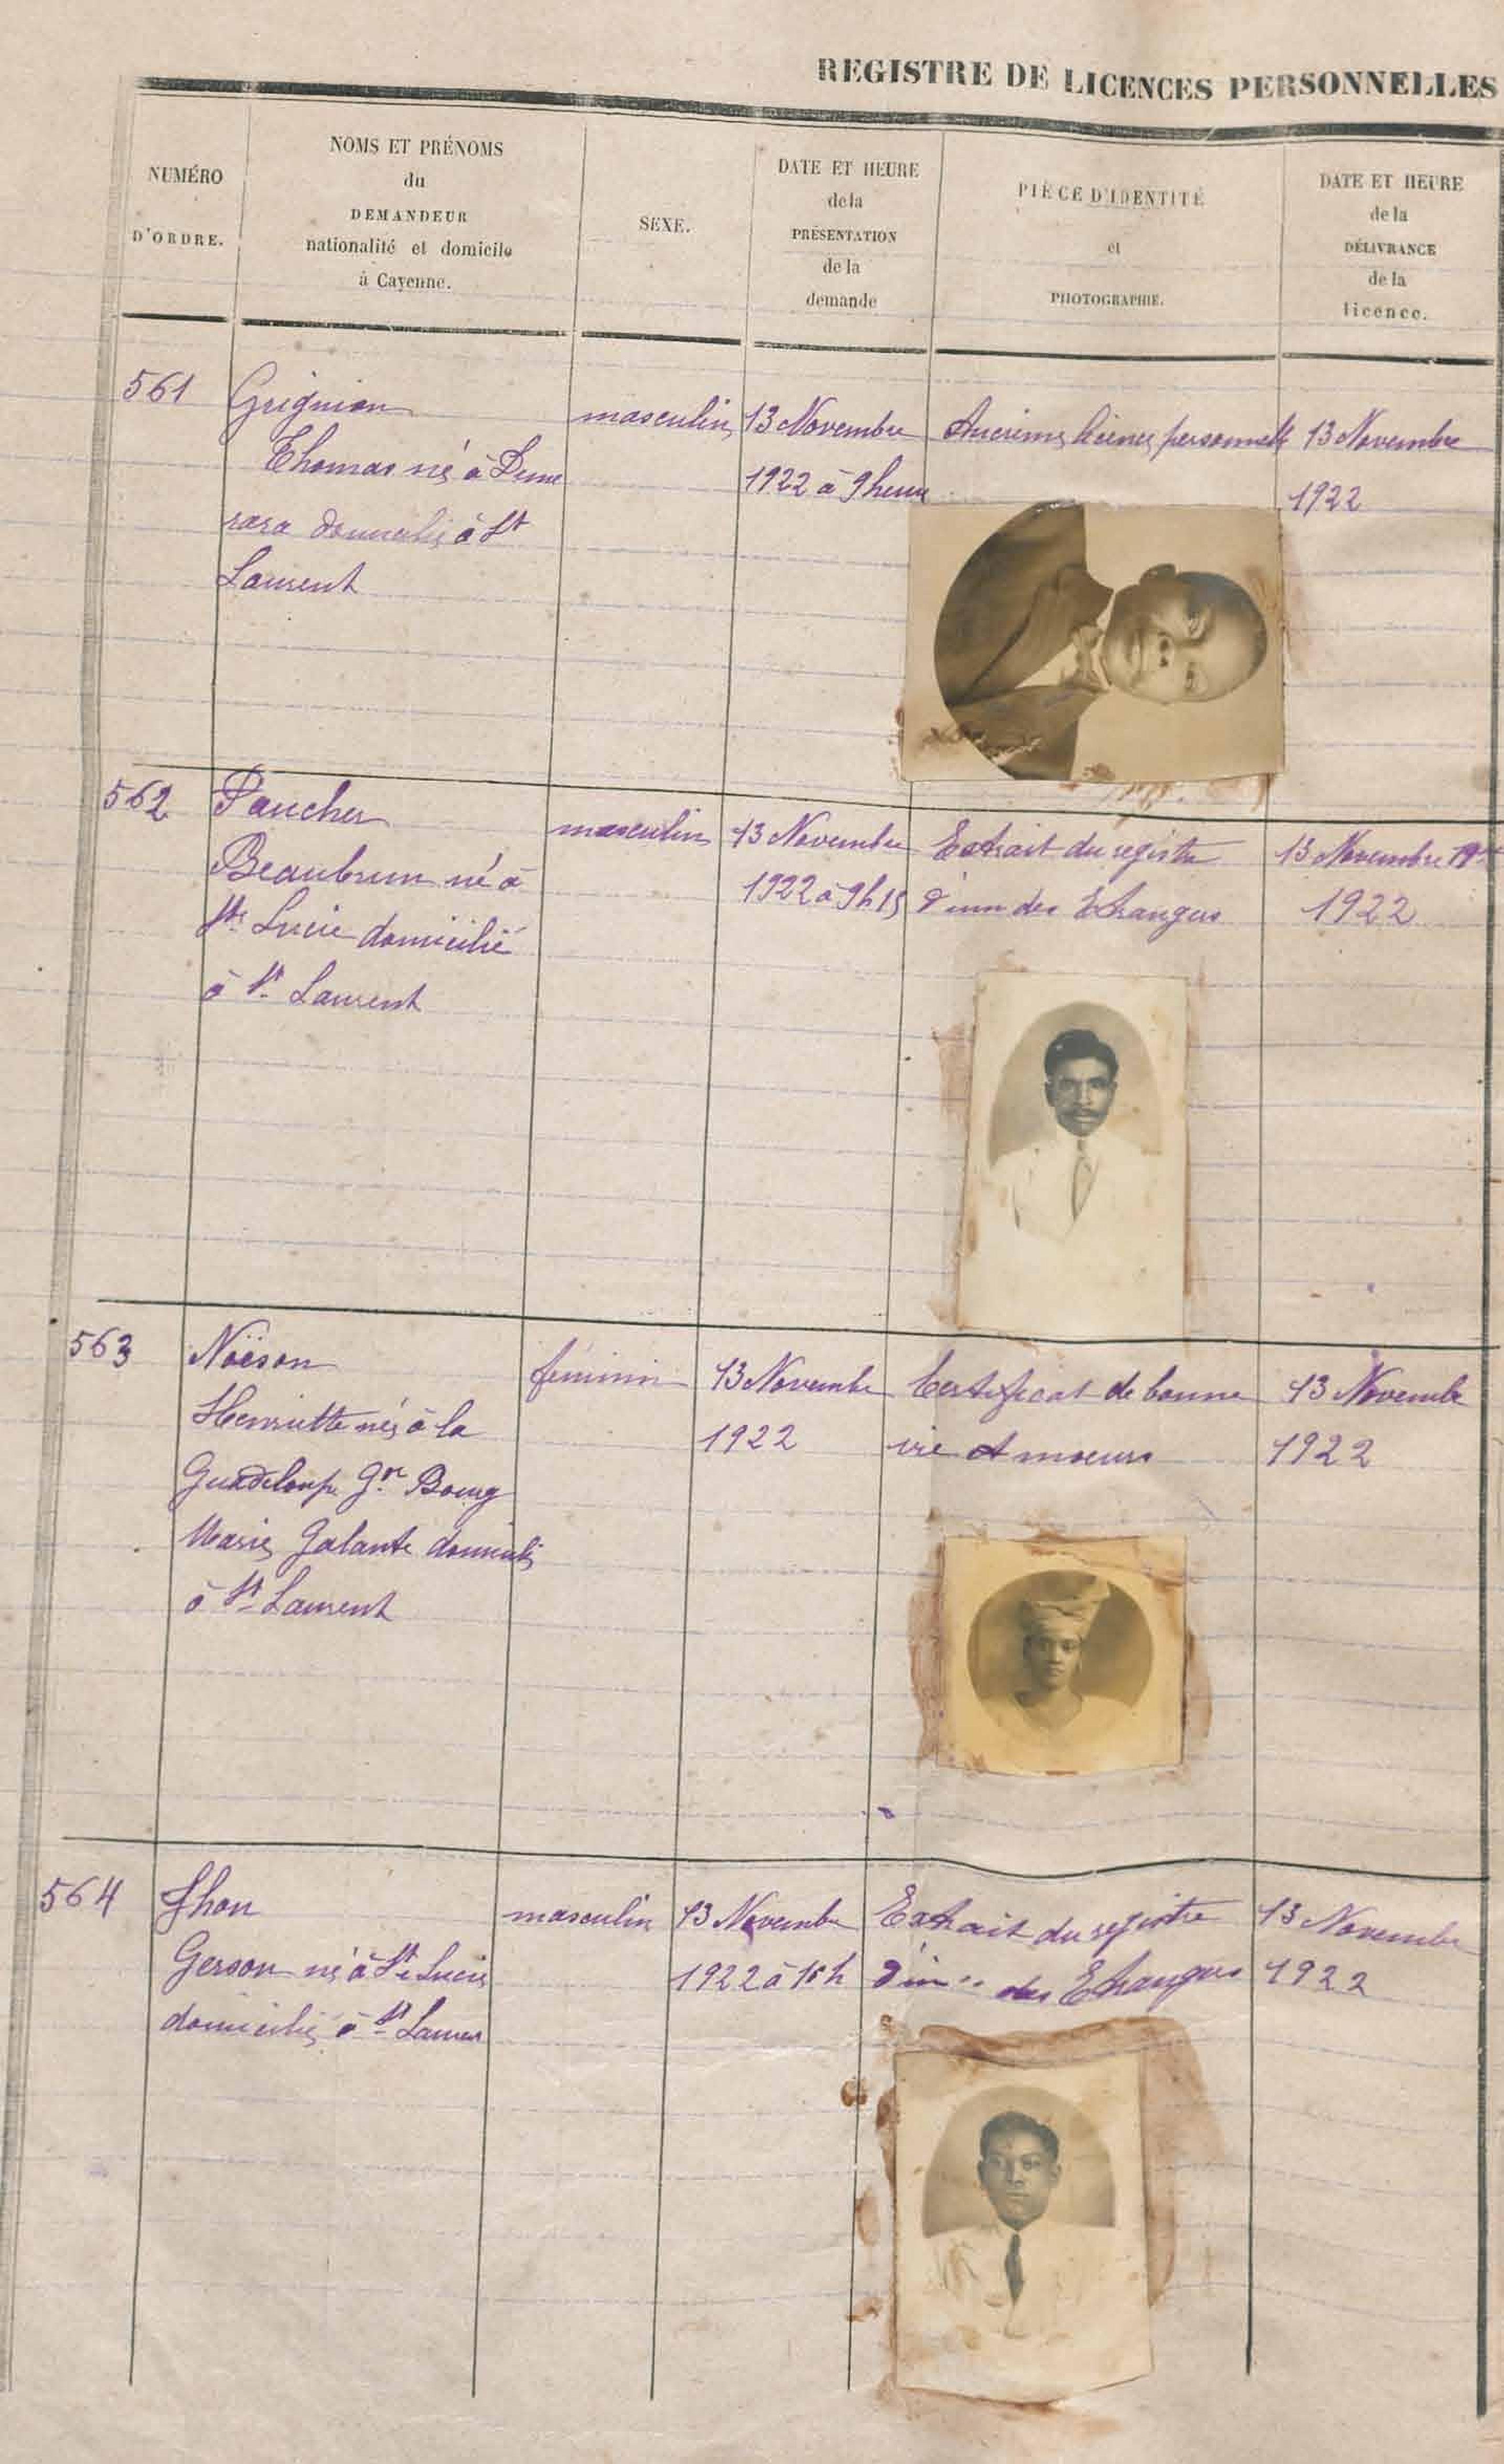 REGISTRE DE LICENCES PERSONNELLES
NUMÉRO
D'ORDRE.
NOMS ET PRÉNOMS
du
DEMANDEUR
nationalité et domicile
à Cayenne.
SEXE.
DATE ET HEURE
de la
PRÉSENTATION
de la
demande
PIÈCE D'IDENTITÉ
et
PHOTOGRAPHIE.
DATE ET HEURE
de la
DÉLIVRANCE
de la
licence.
561
Grignion
Thomas né à Deme
rara domicilié à St
Laurent
masculin
13 Novembre
1922 à 9 heure
Ancienne licence personnelle
13 Novembre
1922
562
Faucher
Beaubrun né à
Ste Lucie domicilié
à St Laurent
masculin
13 Novembre
1922 à 9h15
Extrait du registre
d'imm des Etrangers
13 Novembre
1922
563
Noëson
Henriette née à la
Guadeloupe Gr Bourg
Marie Galante domicilié
à St Laurent
féminin
13 Novembre
1922
Certificat de bonne
vie et moeurs
13 Novembre
1922
564
Jhon
Gerson né à Ste Lucie
domicilié à St Lauren
masculin
13 Novembre
1922 à h
Extrait du registre
d'im des Etrangers
13 Novembre
1922